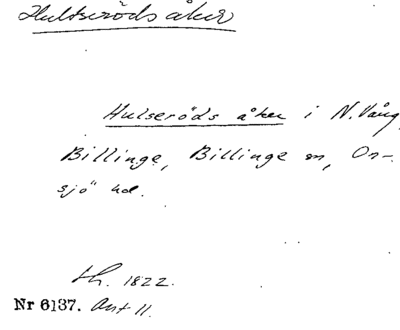 Hultseröds åker
Hulseröds åker i N. Vång,
Billinge, Billinge sn, On-
sjö hd.
lh. 1822.
Nr 6137. Ant 11.